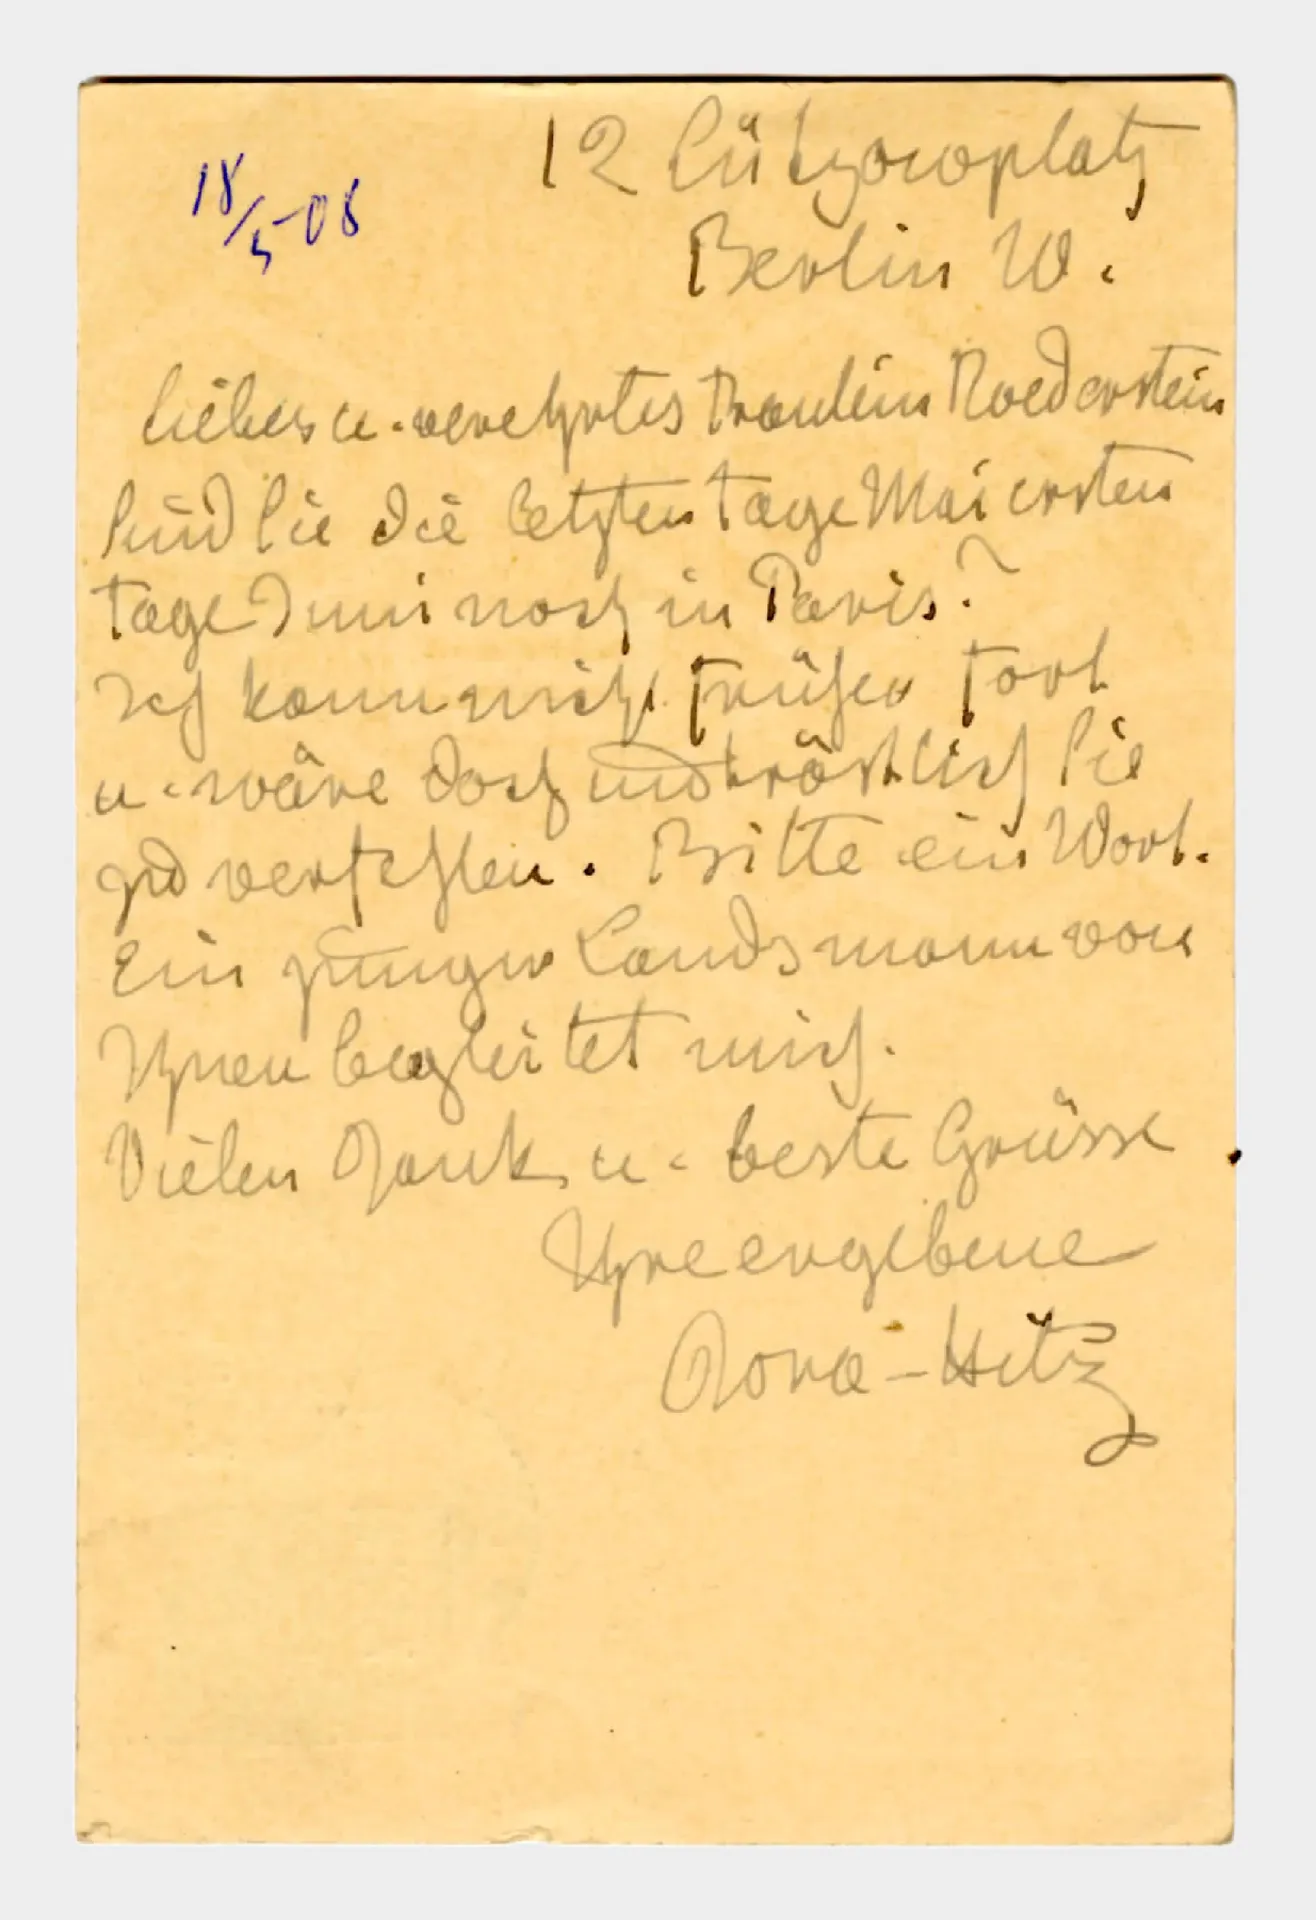 12 Lützowplatz
18/5 08
Berlin W.
Liebes u. verehrtes Fraulein Roederstein
Sind Sie die letzten Tage Mai ersten
Tage Juni noch in Paris?
Ich kann nicht früher fort
u. wäre doch untröstlich Sie
zu verfehlen. Bitte ein Wort.
Ein junger Landsmann von
Ihnen begleitet mich.
Vielen Dank u. beste Grüsse
Ihre ergebene
Dora Hitz